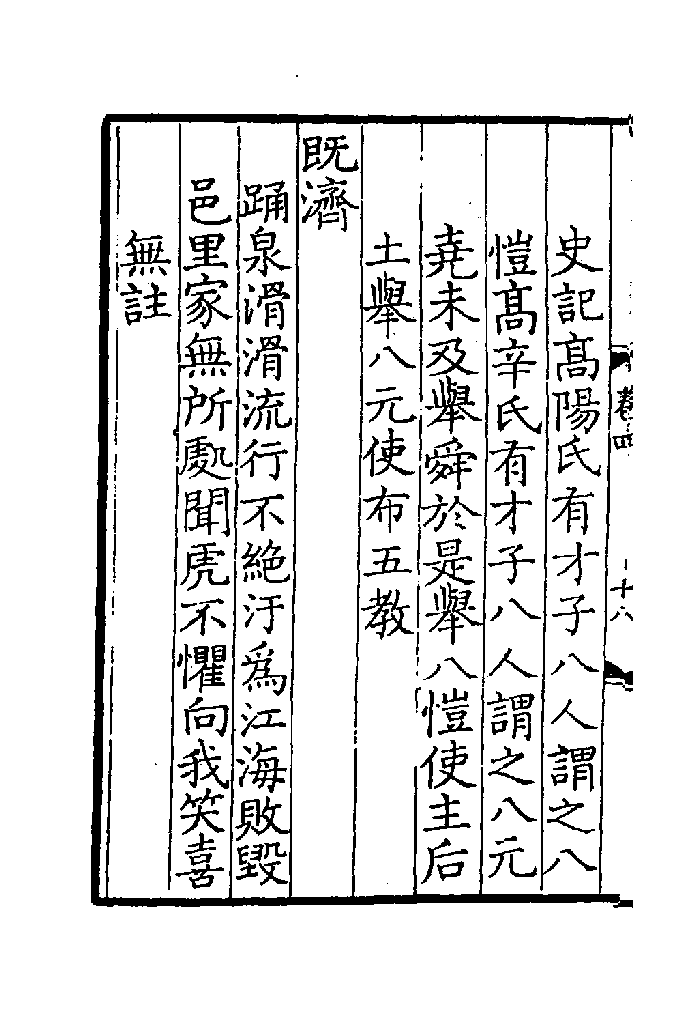 卷四
十六
史記髙陽氏有才子八人謂之八
愷髙辛氏有才子八人謂之八元
堯未及舉舜於是舉八愷使主后
土舉八元使布五教
既濟
踊泉滑滑流行不絶汙爲江海敗毀
邑里家無所處聞虎不懼向我笑喜
無註